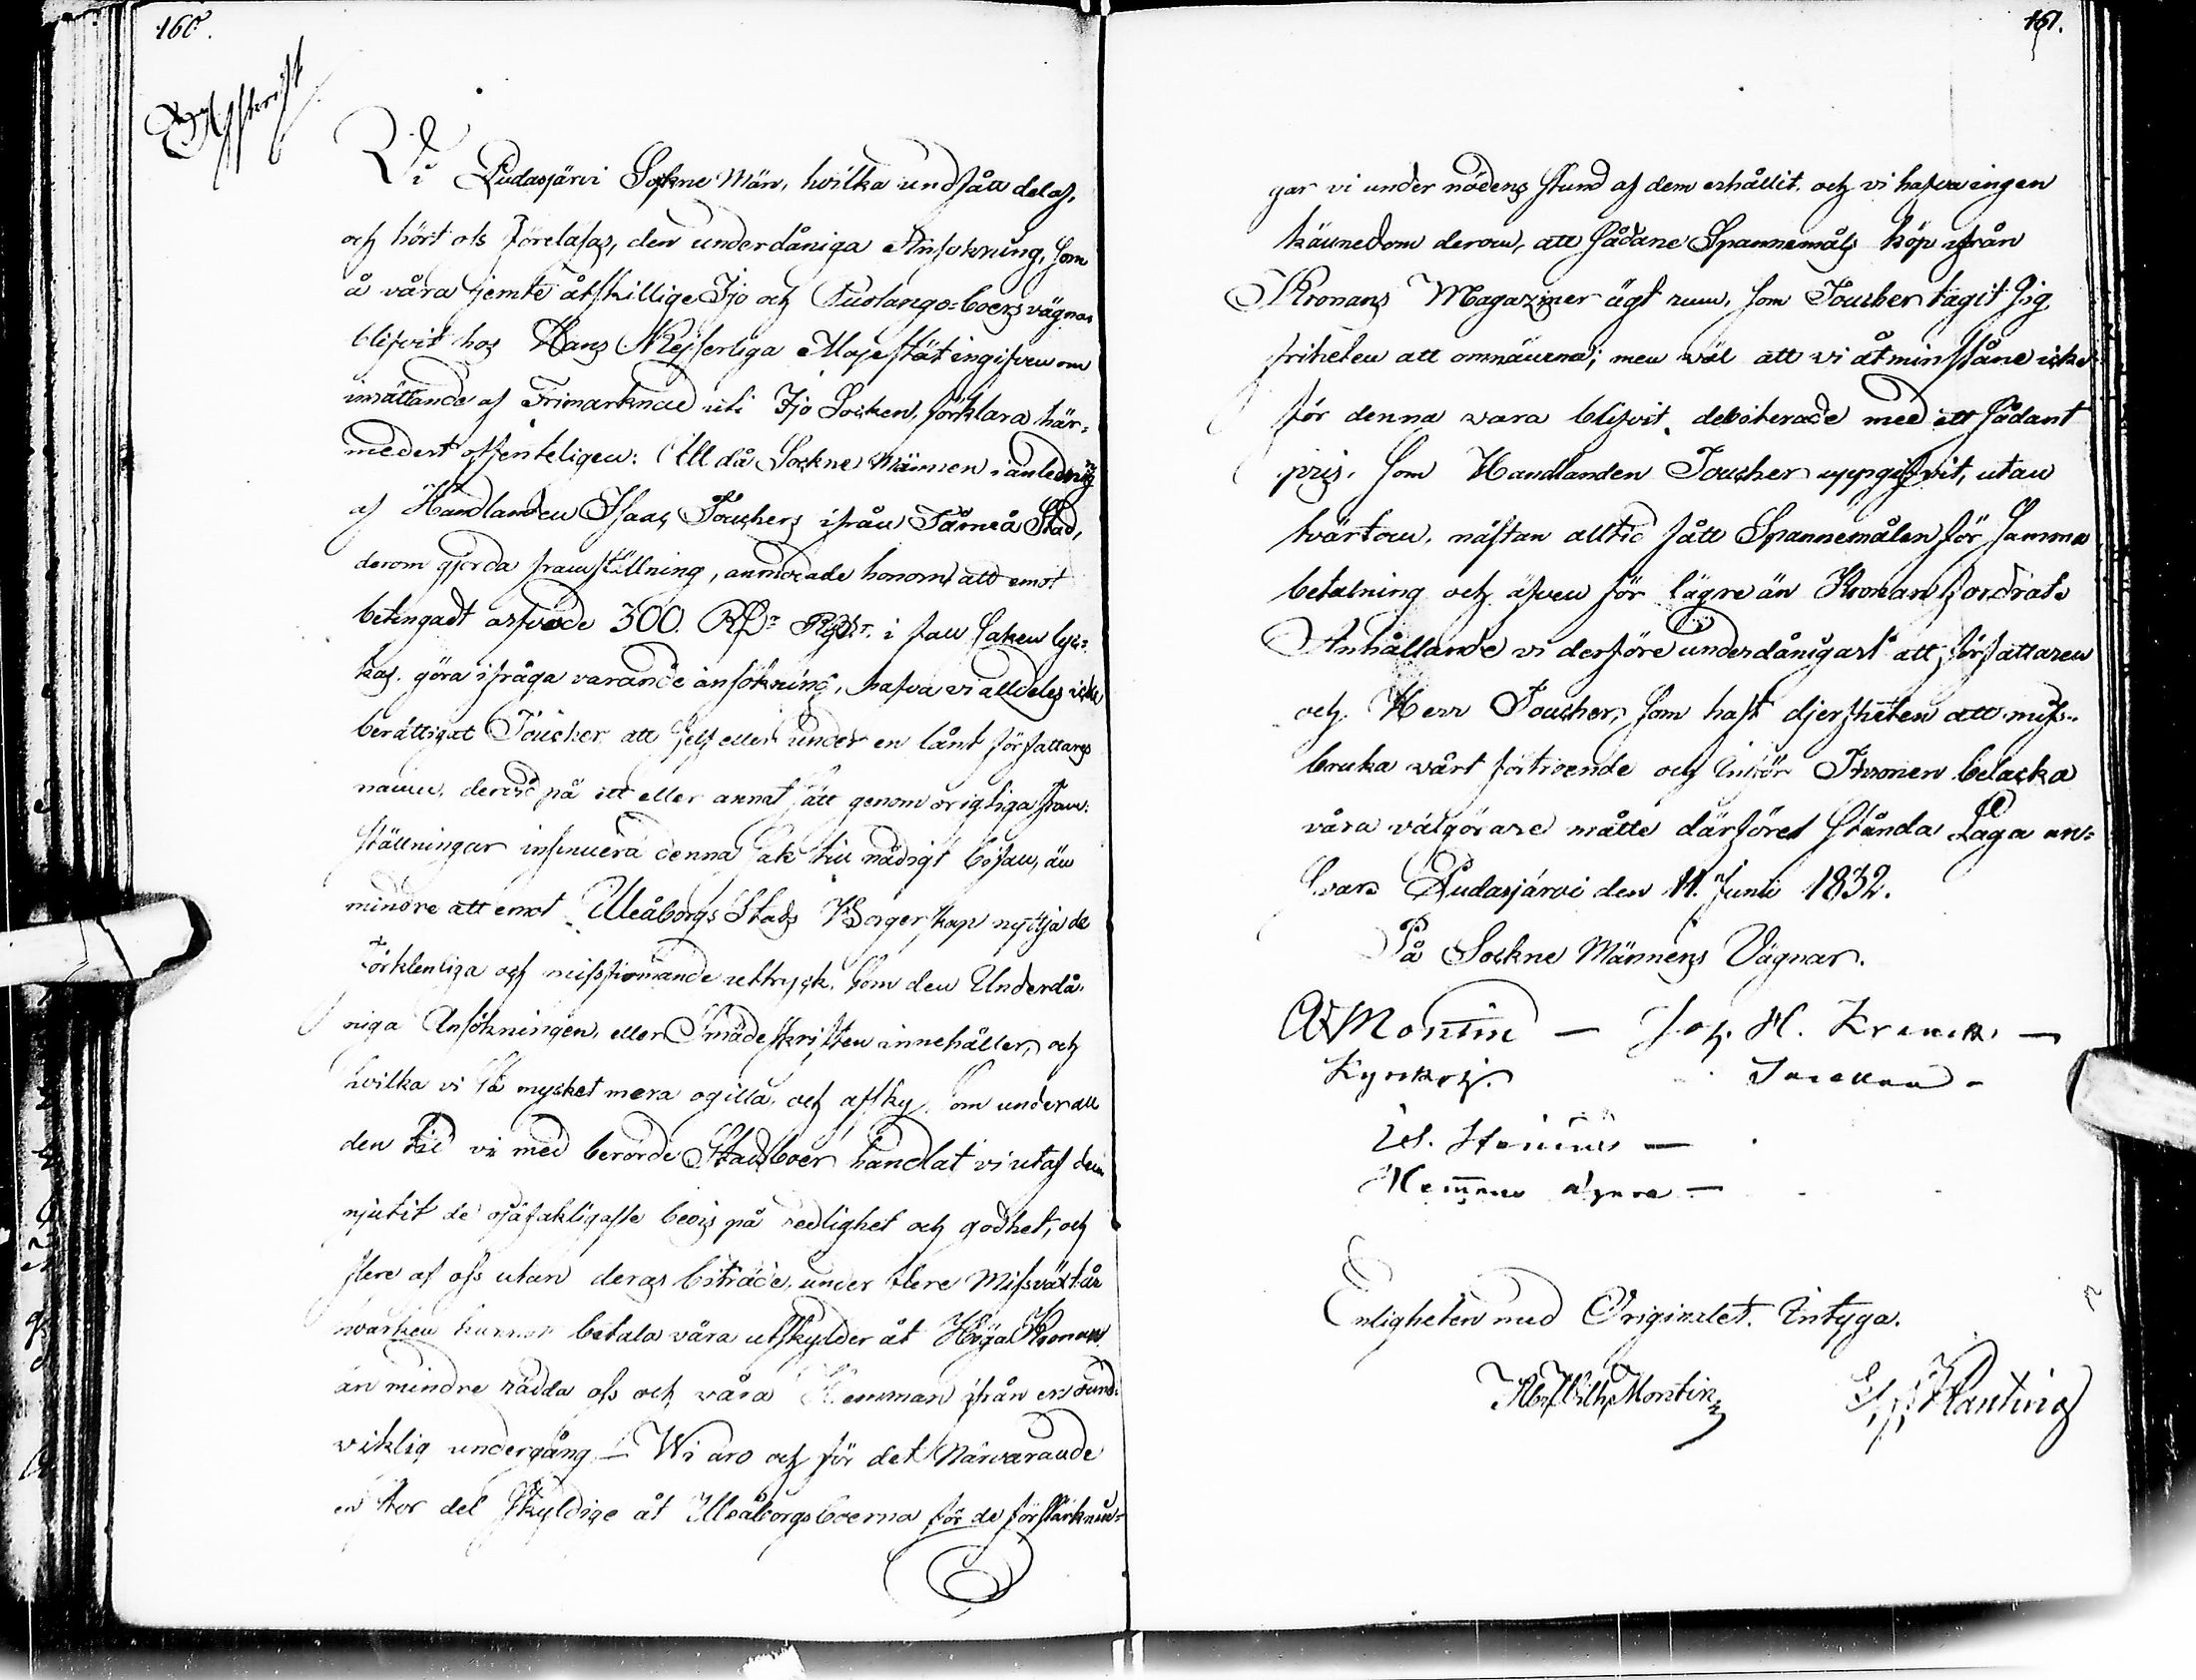 160.
Afskrift
Vi Pudasjärvi Sokne Män, hvilka undfått del af,
och hört oss föreläsas, den underdåniga Ansökning, som
å våra jemte åtskillige Ijo och Kuolango-boers vägnar
blifvit hos Hans Kejserliga Majestät ingifven om
inrättande af Frimarknad uti Ijo Socken, förklara här-
medelst offenteligen: Att då Sockne Männen i anledning
af Handlanden Isaac Touchers ifrån Torneå Stad,
derom gjorda framställning, anmodade honom att emot
betingadt arfvode 300. RD Rgds. i fall saken lyc-
kas, göra ifråga varande ansökning, hafva vi alldeles icke
berättigat Toucher att sjelf eller under en lånt författares
namn, derвid på ett eller annat sätt genom origtiga fram-
ställningar insinuera denna sak till nådigt bifall, än
mindre att emot Uleåborgs Stads Borgerskap nyttja de
förklenliga och missfirmande uttryck, som den Underdå-
niga Ansökningen, eller Smädeskriften innehåller, och
hvilka vi så mycket mera ogilla, och afsky, som under all
den tid vi med berörde Stadsboer handlat vi utaf dem
njutit de ojäfakligaste bevis på redlighet och godhet, och
flere af oss utan deras biträde, under flere Missväxtår
hvarken kunnat betala våra utskylder åt Höga Kronan
än mindre rädda oss och våra Hemman ifrån en ound-
viklig undergång – Wi äro och för det Närvarande
en stor del skyldige åt Uleåborgsboerna för de förstärknin-
161.
gar vi under nödens stund af dem erhållit, och vi hafva ingen
kännedom derom, att sådane Spannemåls köp ifrån
Kronans Magaziner ägt rum, som Toucher tagit sig
friheten att omnämna; men väl att vi åtminstone icke
för denna vara blifvit debiterade med ett sådant
pris, som Handlanden Toucher uppgifvit, utan
tvärtom, nästan alltid fått Spannemålen för samma
betalning och äfven för lägre än Kronan fordrat.
Anhållande vi derföre underdånigast att författaren
och Herr Toucher, som haft djerfheten att miss-
bruka vårt förtroende och inför Thronen belacka
våra välgörare måtte därföre stånda Laga an-
svar. Pudasjärvi den 11. Junii 1832.
På Sockne Männens Vägnar.
AW Montin — Joh. H.
Enligheten med Originalet. Intyga.
Ab. Wilh. Montin